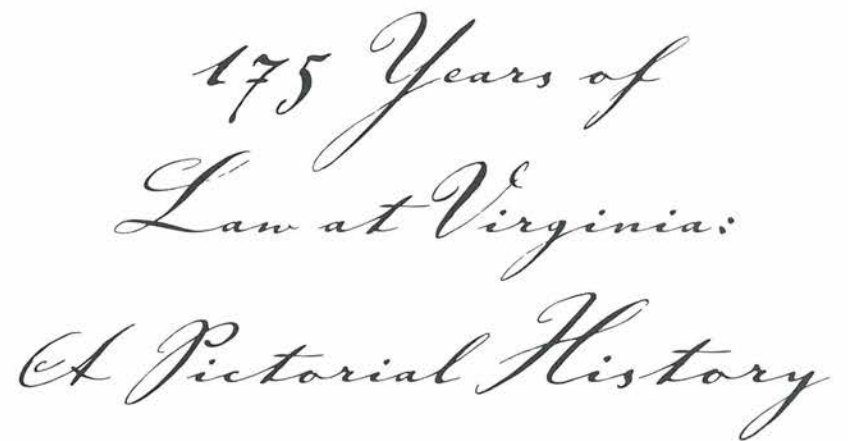 175 Years of
Law at Virginia:
A Pictorial History